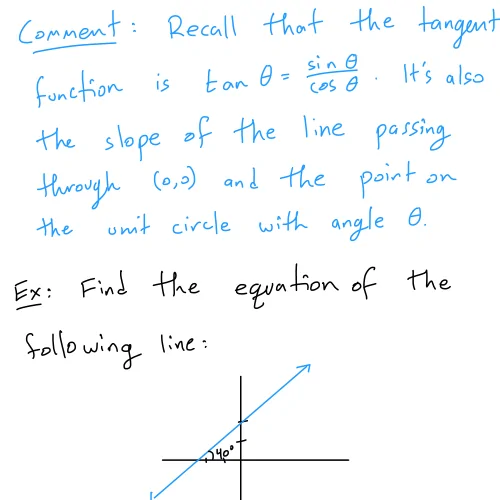 Comment: Recall that the tangent
function is tan θ = sin θ / cos θ. It's also
the slope of the line passing
through (0,0) and the point on
the unit circle with angle θ.
Ex: Find the equation of the
following line:
40°